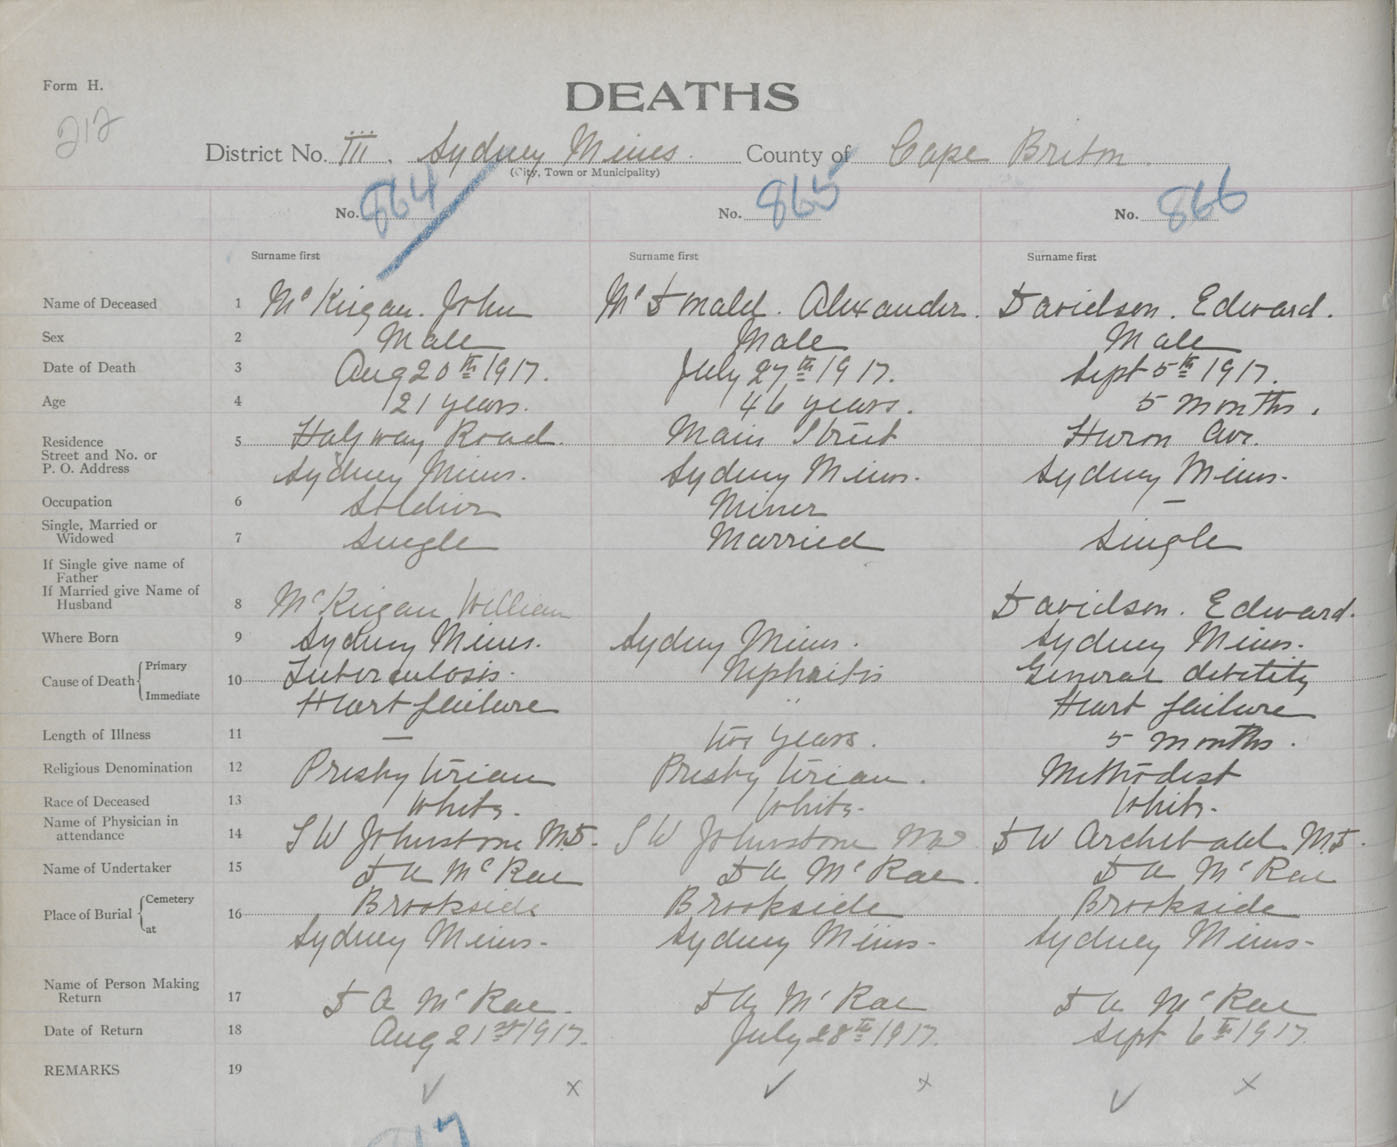 Form H.
DEATHS
212
District No. III. Sydney Mines. County of Cape Briton.
(City, Town or Municipality)
No. 864 No. 865 No. 866
Surname first Surname first Surname first
Name of Deceased 1 McKiigan. John McDonald. Alexander. Davidson. Edward.
Sex 2 Male Male Male
Date of Death 3 Aug 20th 1917. July 27th 1917. Sept 5th 1917.
Age 4 21 years. 46 years. 5 months.
Residence
Street and No. or
P. O. Address
5 Halfway Road. Main Street Huron Ave.
Sydney Mines. Sydney Mines. Sydney Mines.
Occupation 6 Soldier Miner —
Single, Married or
Widowed 7 Single Married Single
If Single give name of
Father
If Married give Name of
Husband 8 McKiigan William Davidson. Edward.
Where Born 9 Sydney Mines. Sydney Mines. Sydney Mines.
Cause of Death Primary 10 Tuberculosis. Nephritis General debility
Immediate Heart failure " Heart failure
Length of Illness 11 — two years. 5 months.
Religious Denomination 12 Presbyterian Presbyterian. Methodist
Race of Deceased 13 White. White. White.
Name of Physician in
attendance 14 S W Johnstone M.D. S W Johnstone MD D W Archibald M.D.
Name of Undertaker 15 D A McRae D A McRae. D A McRae
Place of Burial Cemetery 16 Brookside Brookside Brookside
at Sydney Mines. Sydney Mines. Sydney Mines.
Name of Person Making
Return 17 D A McRae. D A McRae D A McRae
Date of Return 18 Aug 21st 1917. July 28th 1917. Sept 6th 1917.
REMARKS 19
✓ x ✓ x ✓ x